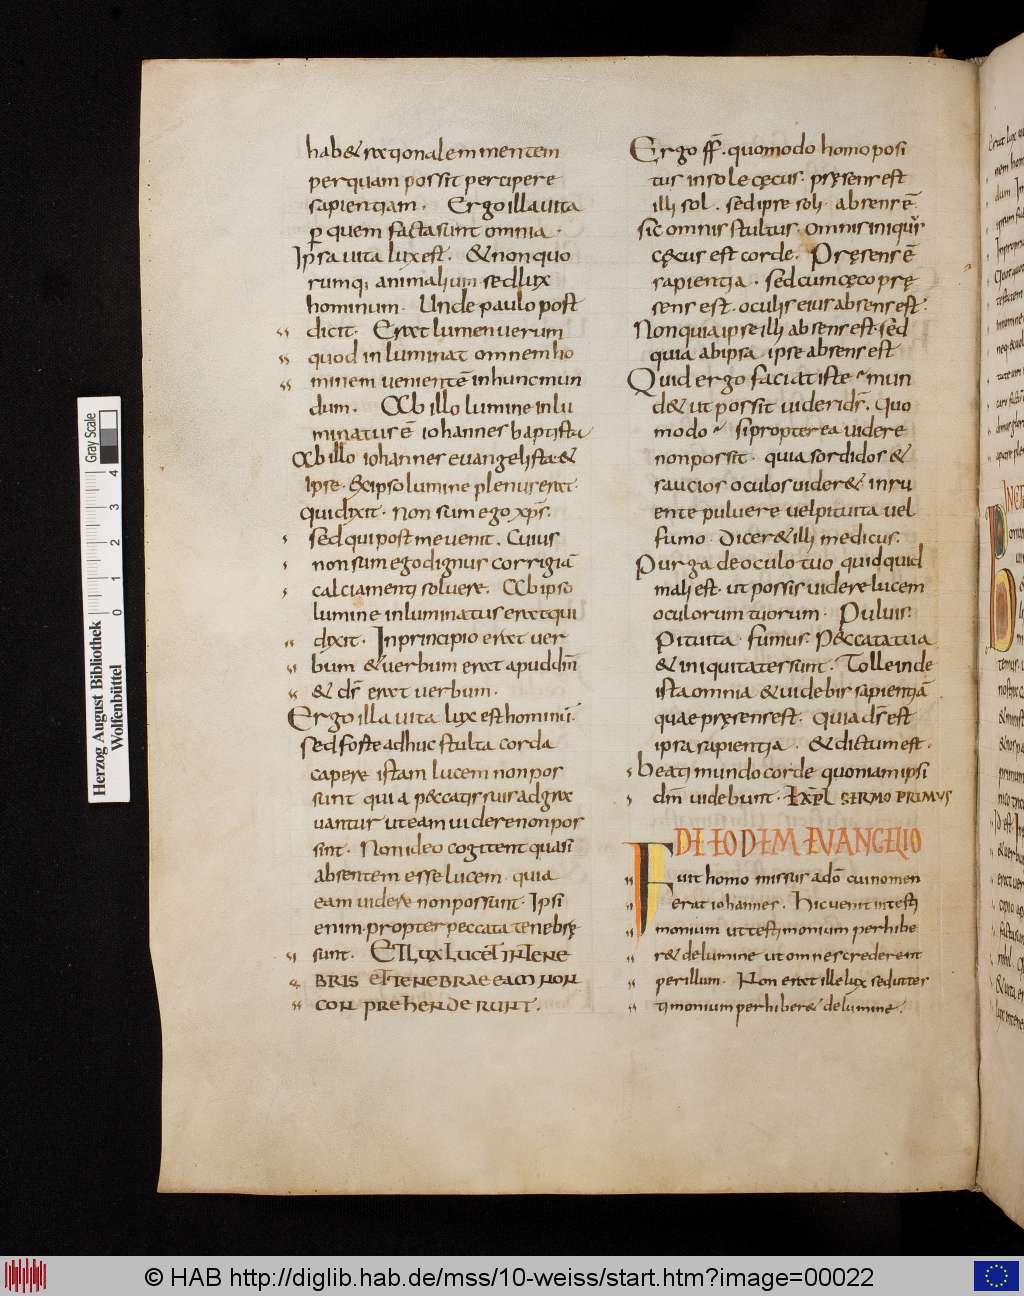 hab& rationalem mentem
per quam possit percipere
sapientiam. Ergo illa vita
ꝑ quem facta sunt omnia.
Ipsa vita lux est. & non quo
rumq; animalium sed lux
hominum. Unde paulo post
dicit. Erat lumen uerum
quod inluminat omnem ho
minem uenientē in hunc mun
dum. Ab illo lumine inlu
minatus ē iohannes baptista
Ab illo iohannes euangelista &
ipse. Ex ipso lumine plenus erat.
qui dixit. non sum ego xp̄s.
sed qui post me uenit. Cuius
non sum ego dignus corrigiā
calciamenti soluere. Ab ipso
lumine inluminatus erat qui
dixit. In principio erat uer
bum & uerbum erat apud dm̄
& ds̄ erat uerbum.
Ergo illa uita lux est hominū.
sed forte adhuc stulta corda
capere istam lucem non pos
sunt quia peccatis suis adgra
uantur ut eam uidere non pos
sint. Non ideo cogitent quasi
absentem esse lucem. quia
eam uidere non possunt. Ipsi
enim propter peccata tenebrę
sunt. ET Lux Lucet iN TeNe
BRIS eT TeNeBRAe eam NON
CoN PReHeNDeRUNT.
Ergo ff̄. quomodo homo posi
tus in sole cęcus. pręsens est
illi sol. sed ipse soli absens ē.
sic omnis stultus. omnis iniquus
cęcus est corde. Pręsens ē
sapientia. sed cum cęco prę
sens est. oculis eius absens est.
Non quia ipse illi absens est. sed
quia ab ipsa ipse absens est
Quid ergo faciat iste mun
d& ut possit uideri ds̄. Quo
modo si propterea uidere
non possit. quia sordidos &
saucios oculos uider& inru
ente puluere uel pituita uel
fumo. Dicer& illi medicus.
Purga de oculo tuo quidquid
mali est. ut possis uidere lucem
oculorum tuorum. Puluis.
Pituita fumus. Peccata tua
& iniquitates sunt. Tolle inde
ista omnia & uidebis sapientiā
quae pręsens est. quia ds̄ est
ipsa sapientia. & dictum est.
beati mundo corde quoniam ipsi
dm̄ uidebunt. Expl SERMO PRIMUS
DE EODEM EVANGELIO
Fuit homo missus a dō cui nomen
erat iohannes. Hic uenit in testi
monium ut testimonium perhibe
r& de lumine ut omnes crederent
per illum. Non erat ille lux sed ut tes
timonium perhiber& de lumine.
Herzog August Bibliothek
Wolfenbüttel
0 1 2 3 4
Gray Scale
© HAB http://diglib.hab.de/mss/10-weiss/start.htm?image=00022